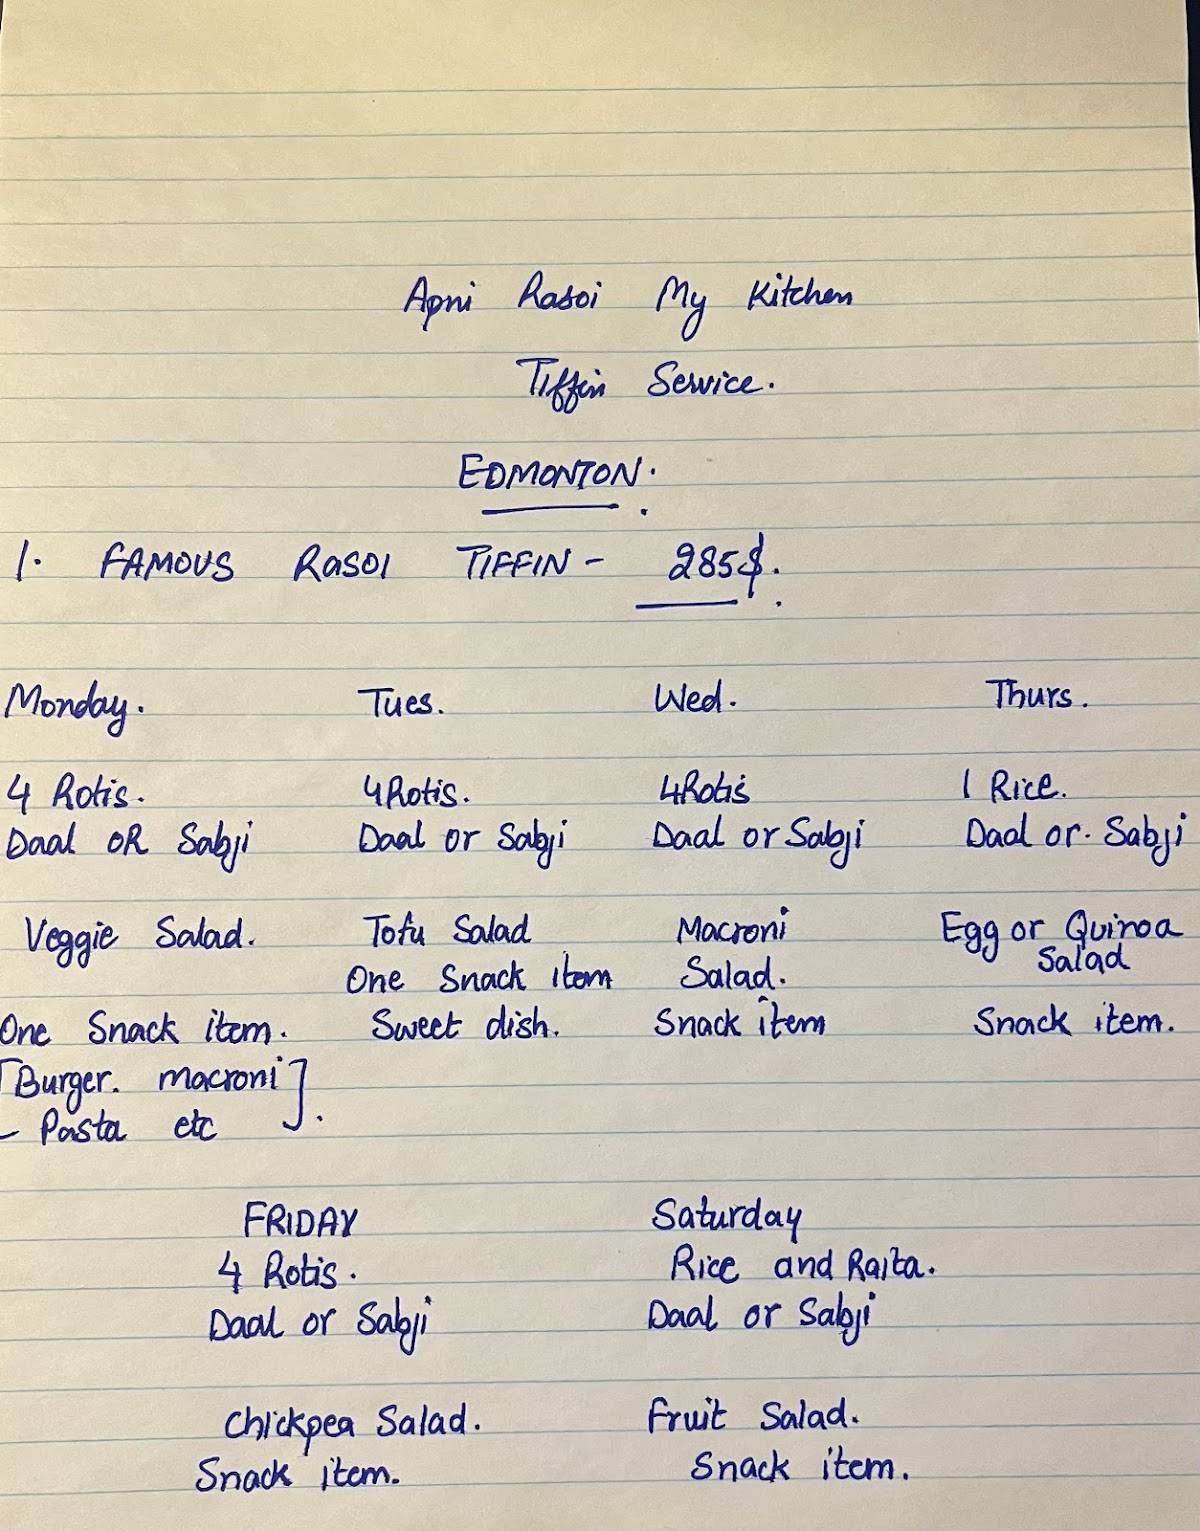 Apni Rasoi My Kitchen
Tiffin Service.
EDMONTON.
1. FAMOUS RASOI TIFFIN - 285$.
Monday. Tues. Wed. Thurs.
4 Rotis. 4 Rotis. 4 Rotis 1 Rice.
Daal OR Sabji Daal or Sabji Daal or Sabji Daal or. Sabji
Veggie Salad. Tofu Salad Macroni Egg or Quinoa
One Snack item Salad. Salad
One Snack item. Sweet dish. Snack item Snack item.
[Burger. macroni
- Pasta etc ].
FRIDAY Saturday
4 Rotis. Rice and Raita.
Daal or Sabji Daal or Sabji
Chickpea Salad. Fruit Salad.
Snack item. Snack item.